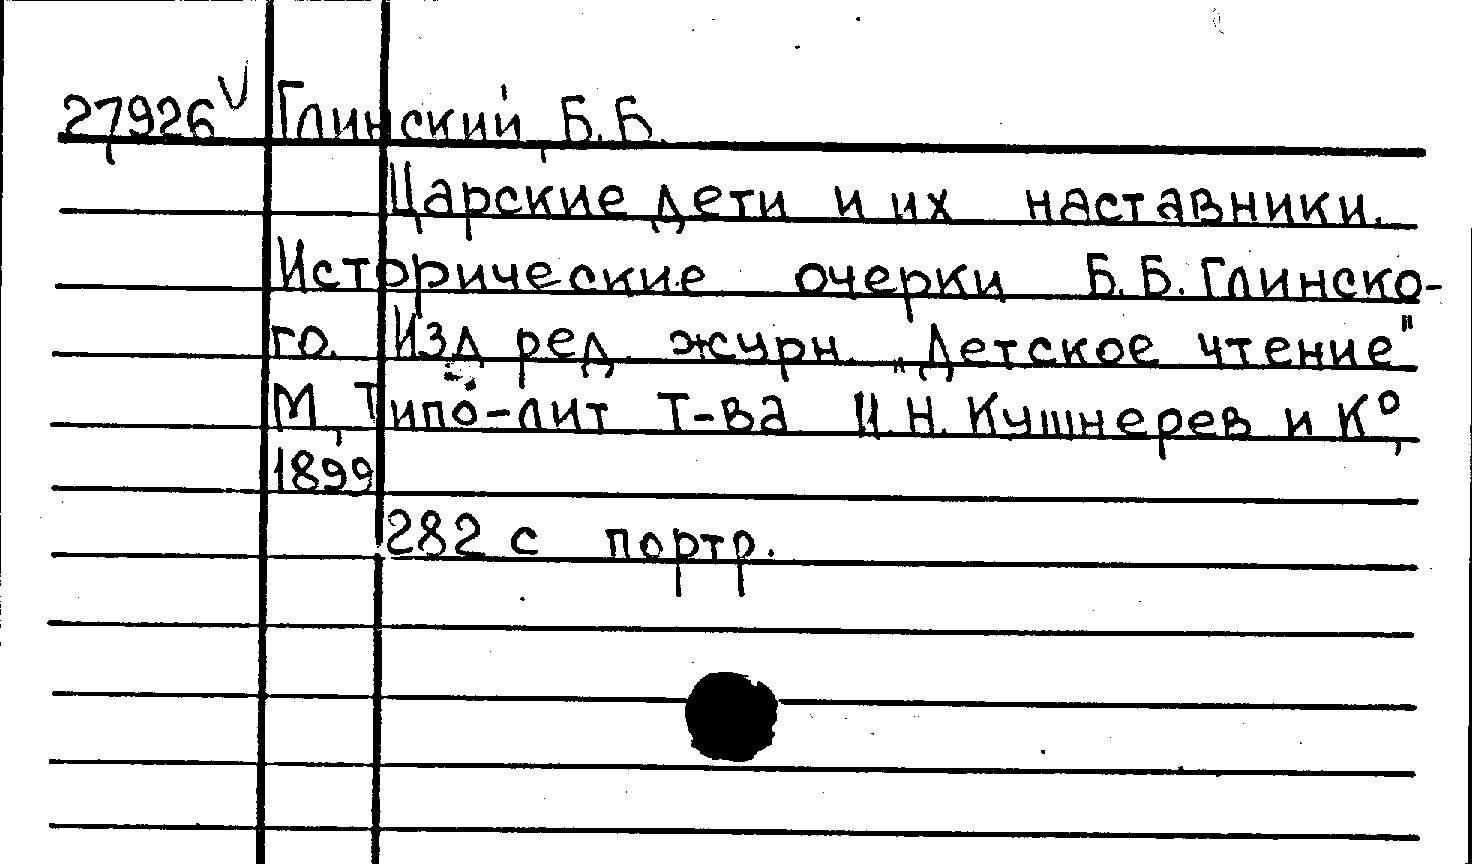 27926 V Глинский, Б.Б.
Царские дети и их наставники.
Исторические очерки Б.Б. Глинско-
го. Изд. ред. журн. „Детское чтение"
М., Типо-лит Т-ва И.Н. Кушнерев и К°,
1899
282 с портр.